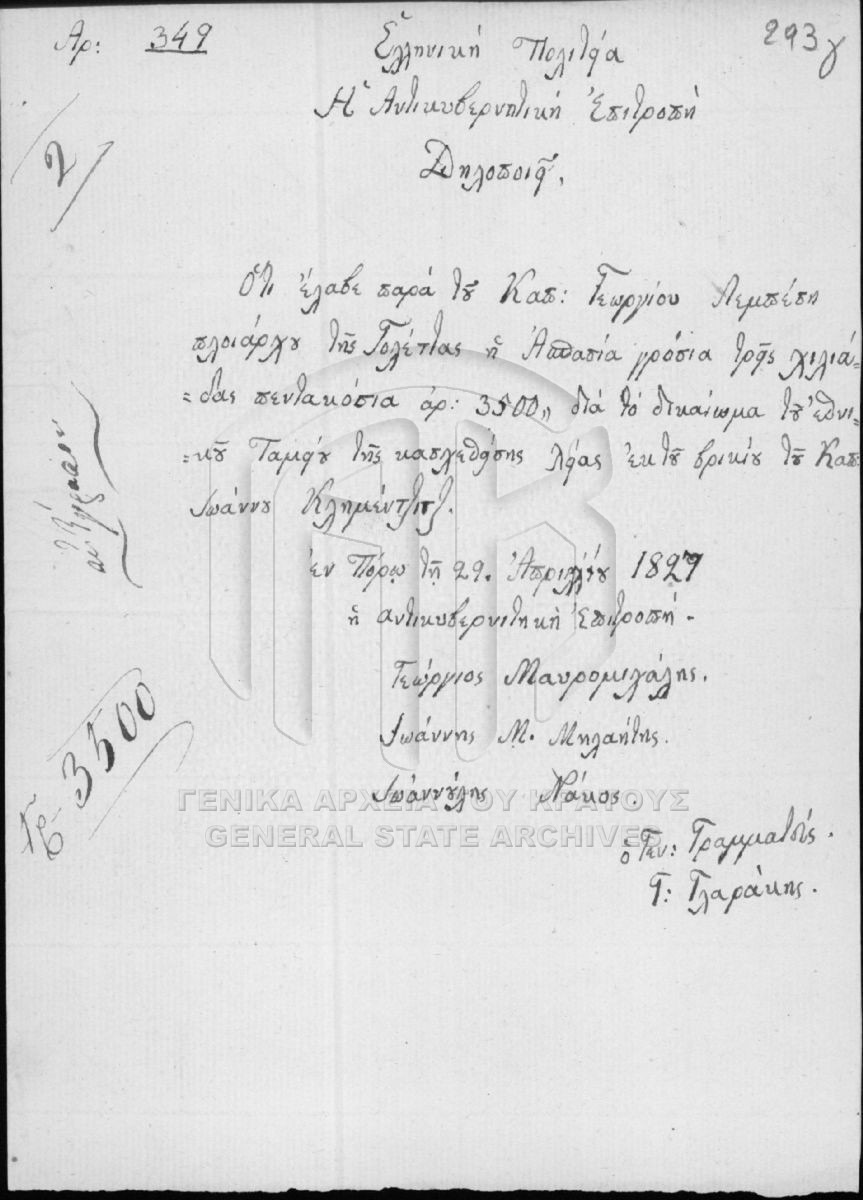 Αρ: 349
293γ
Ἑλληνική Πολιτεία
Ἡ Ἀντικυβερνητική Ἐπιτροπή
Δηλοποιεῖ,
2
Ὅτι ἔλαβε παρά τοῦ Καπ: Γεωργίου Λεμπέπη
πλοιάρχου τῆς Γολέττας ἡ Ἀσπασία γρόσια τρεῖς χιλιά-
=δας πεντακόσια ἀρ: 3500,, διά τό δικαίωμα τοῦ ἐθνι-
=κοῦ Ταμείου τῆς λείας ἐκ τοῦ βρικίου τοῦ Καπ:
Ἰωάννου Κλημέντζιτζ.
ἐν Πόρῳ τῇ 29. Ἀπριλλίου 1827
ἡ ἀντικυβερνιτηκή Ἐπιτροπή.
Γεώργιος Μαυρομιχάλης.
Ἰωάννης Μ. Μηλαήτης.
Ἰωάννούλης Νάκος.
ὁ Γεν: Γραμματεύς.
Γ: Γλαράκης.
Γρ 3500
ΓΕΝΙΚΑ ΑΡΧΕΙΑ ΤΟΥ ΚΡΑΤΟΥΣ
GENERAL STATE ARCHIVES